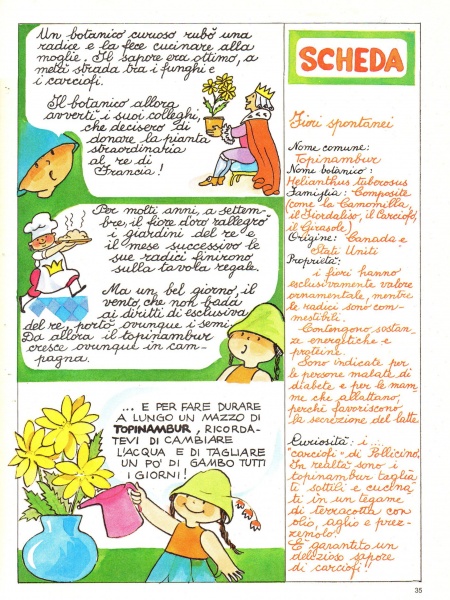 Un botanico curioso rubò una
radice e la fece cucinare alla
moglie. Il sapore era ottimo, a
metà strada tra i funghi e
i carciofi.
Il botanico allora
avvertì i suoi colleghi,
che decisero di
donare la pianta
straordinaria
al re di
Francia!
Per molti anni, a settem-
bre, il fiore d'oro rallegrò
i giardini del re e
il mese successivo le
sue radici finirono
sulla tavola regale.
Ma un bel giorno, il
vento, che non bada
ai diritti di esclusiva
del re, portò ovunque i semi.
Da allora il topinambur
cresce ovunque in cam-
pagna.
... E PER FARE DURARE
A LUNGO UN MAZZO DI
TOPINAMBUR, RICORDA-
TEVI DI CAMBIARE
L'ACQUA E DI TAGLIARE
UN PO' DI GAMBO TUTTI
I GIORNI!
SCHEDA
Fiori spontanei
Nome comune:
Topinambur
Nome botanico:
Helianthus tuberosus
Famiglia: Composite
(come la Camomilla,
il Fiordaliso, il Carciofo,
il Girasole)
Origine: Canada e
Stati Uniti
Proprietà:
i fiori hanno
esclusivamente valore
ornamentale, mentre
le radici sono com-
mestibili.
Contengono sostan-
ze energetiche e
proteine.
Sono indicate per
le persone malate di
diabete e per le mam
me che allattano,
perché favoriscono
la secrezione del latte
Curiosità: i ....
"carciofi" di Pollicino.
In realtà sono i
topinambur taglia
ti sottili e cucina
ti in un tegame
di terracotta con
olio, aglio e prez-
zemolo.
È garantito un
delizioso sapore
di carciofi!
35